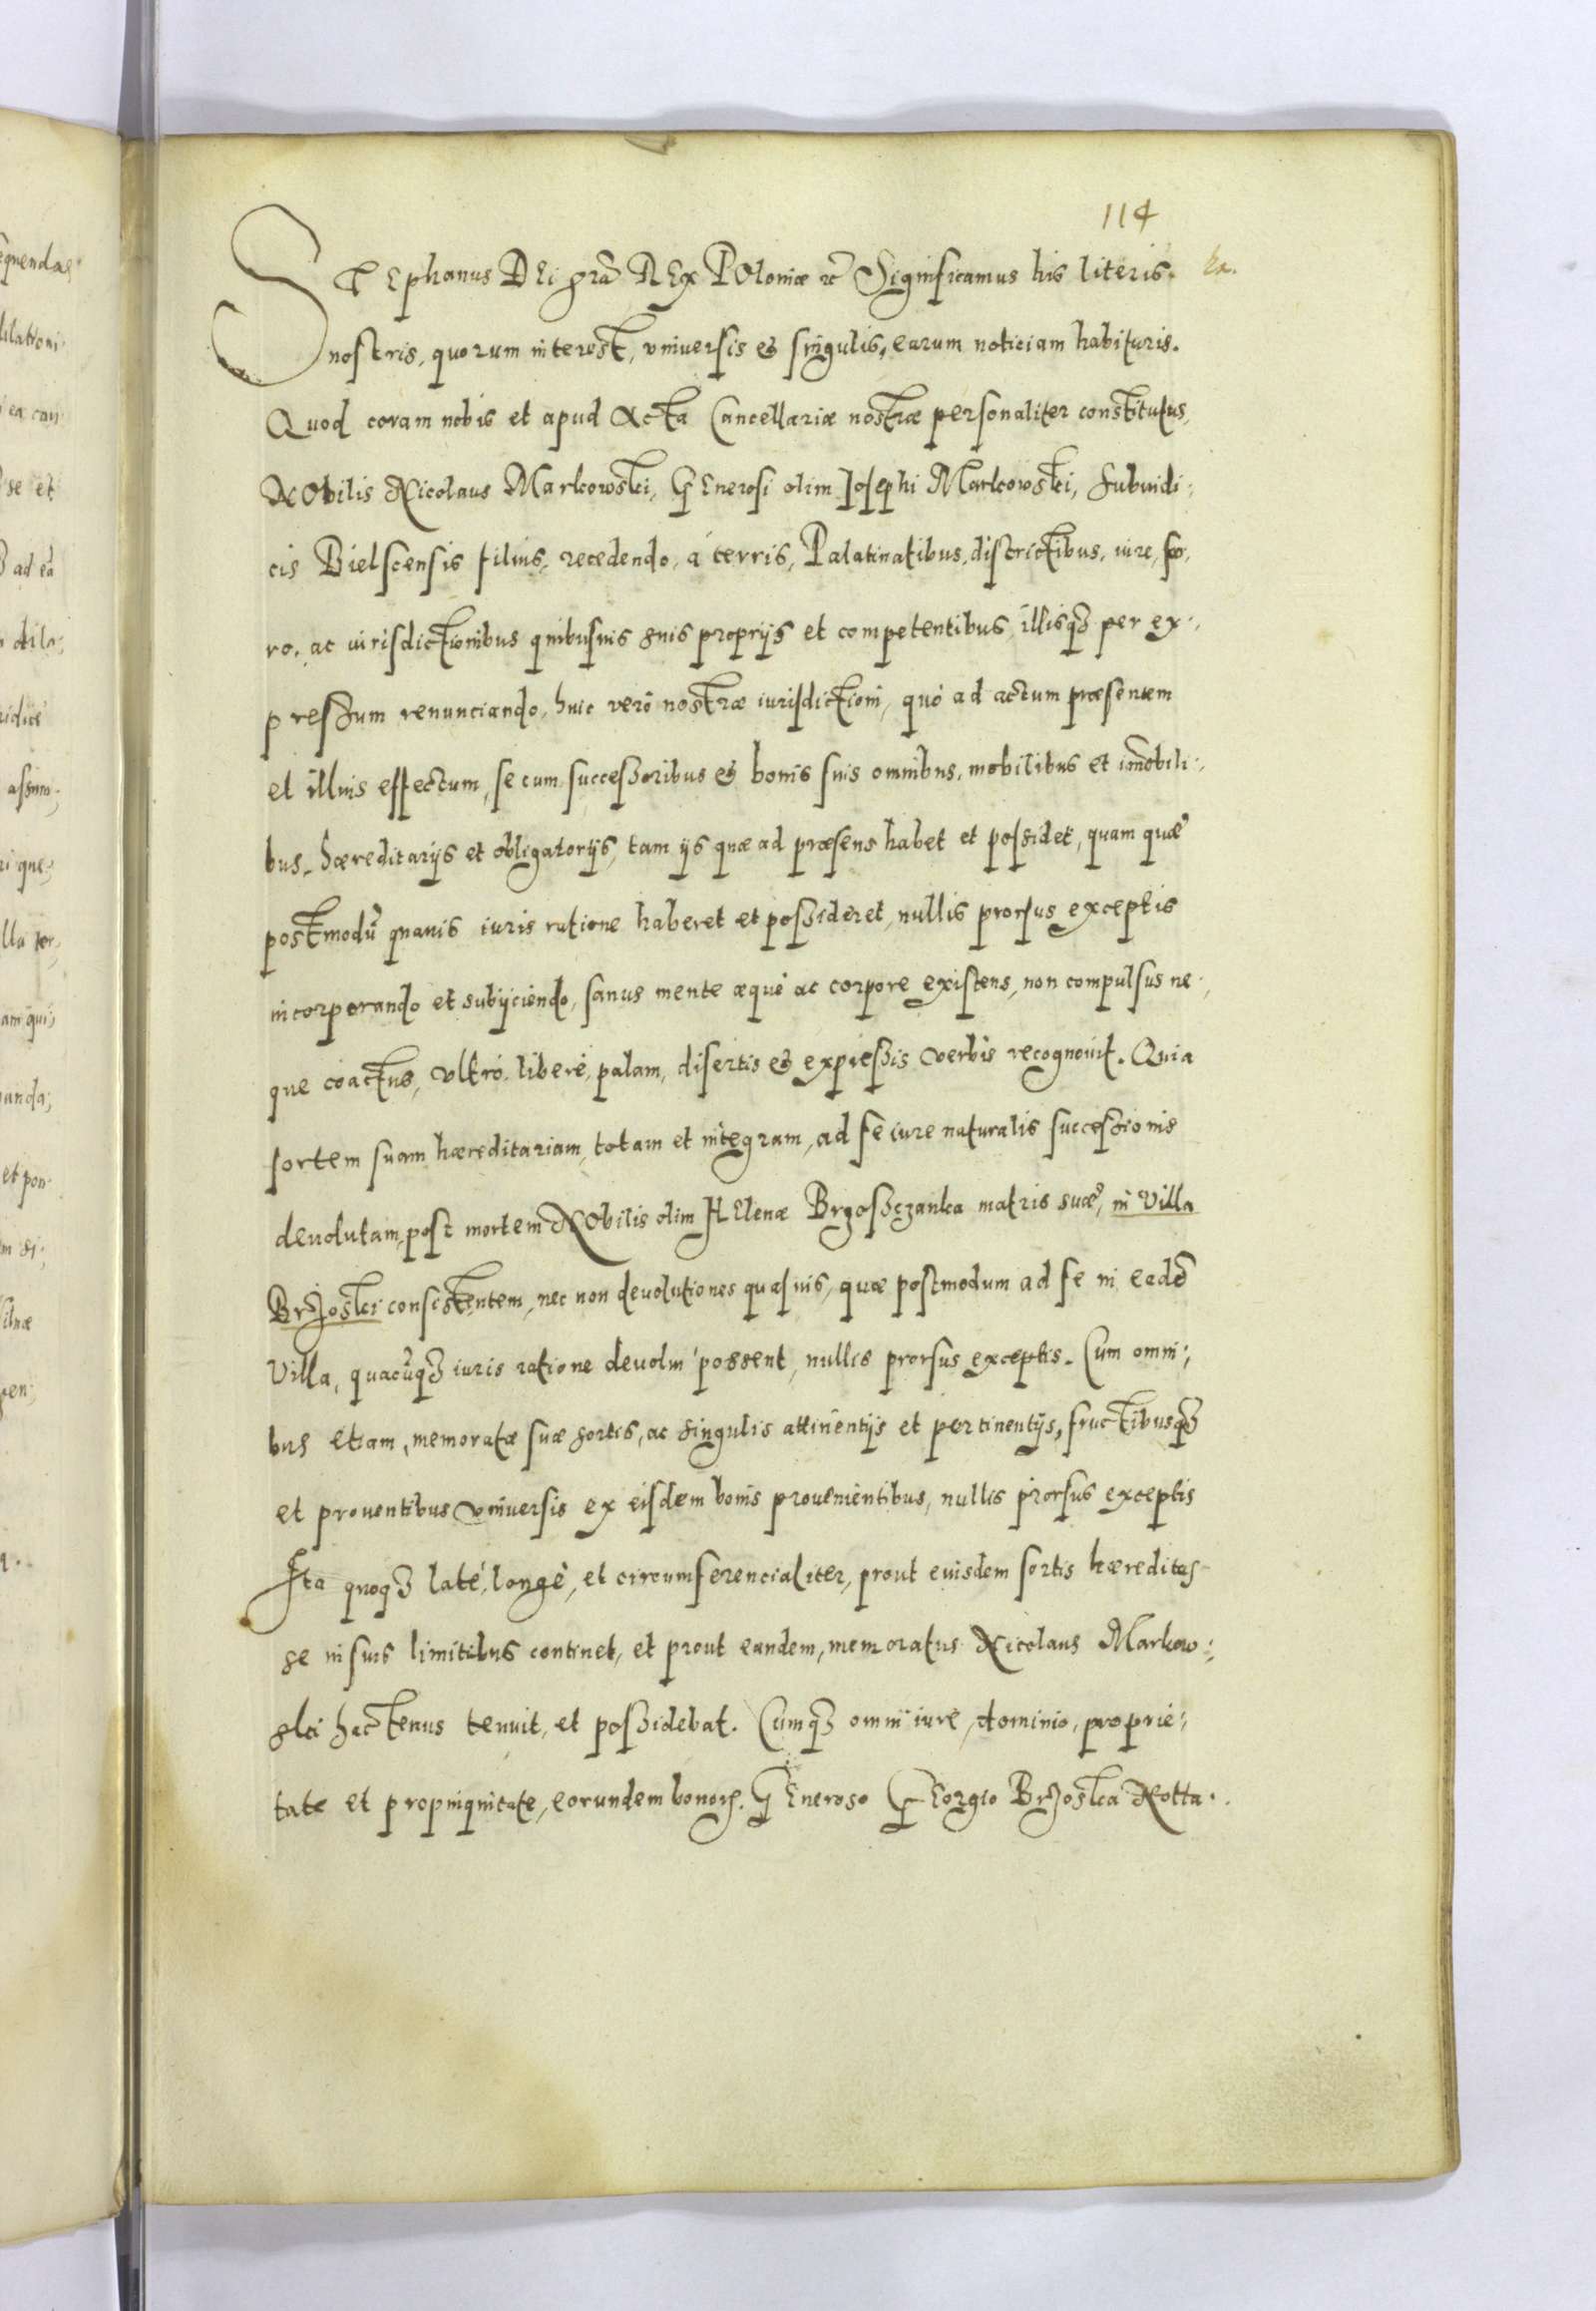 114
STEphanus DEi grã REx POloniæ &c Significamus his literis. ka.
nostris, quorum interest, vniversis & singulis, earum noticiam habituris.
Quod coram nobis et apud Acta Cancellariæ nostræ personaliter constitutus,
NObilis Nicolaus Markowski, GEnerosi olim Josephi Markowski, Subiudi-
cis Bielscensis filius, recedendo, á terris, Palatinatibus, districtibus, iure, fo-
ro, ac iurisdictionibus quibusuis suis proprijs et competentibus, illisqз per ex-
pressum renunciando, huic veró nostræ iurisdictioni, quó ad actum præsentem
et illius effectum, se cum successoribus & bonis suis omnibus, mobilibus et im̃obili-
bus, hæreditarijs et obligatorijs, tam ijs quæ ad præsens habet et possidet, quam quæ
postmodũ quauis iuris ratione haberet et possideret, nullis prorsus exceptis
incorporando et subijciendo, sanus mente æquè ac corpore existens, non compulsus ne-
que coactus, vltró, liberé, palam, disertis & expressis verbis recognouit. Quia
sortem suam hæreditariam, totam et integram, ad se iure naturalis successionis
deuolutam, post mortem NObilis olim HElenæ Brzosczanka matris suæ, in Villa
Brzoski consistentem, nec non deuolutiones quasuis, quæ postmodum ad se in eadẽ
Villa, quacũqз iuris ratione deuolui possent, nullis prorsus exceptis. Cum omni-
bus etiam, memoratæ suæ sortis, ac singulis attinentijs et pertinentijs, fructibusqз
et prouentibus vniversis ex eisdem bonis prouenientibus, nullis prorsus exceptis
Ita quoqз laté, longè, et circumferencialiter, prout euisdem sortis hæreditas
se in suis limitibus continet, et prout eandem, memoratus Nicolaus Markow-
ski hactenus tenuit, et possidebat. Cumqз omni iure, dominio, proprie-
tate et propinquitate, eorundem bonorꝫ. GEneroso GEorgio Brzoska Notta-